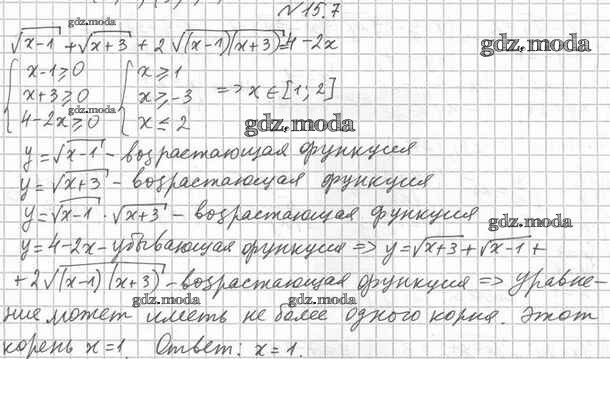 N 15.7
gdz.moda
√x-1 + √x+3 + 2 √(x-1)(x+3) = 4-2x gdz.moda
{ x-1≥0 { x≥1
x+3≥0 x≥-3 => x∈[1; 2]
4-2x≥0 x≤2 gdz.moda
y=√x-1 - возрастающая функция
y=√x+3 - возрастающая функция
y=√x-1 · √x+3 - возрастающая функция
gdz.moda
y=4-2x - убывающая функция => y=√x+3 + √x-1 +
+2√(x-1)(x+3) - возрастающая функция => уравне-
gdz.moda gdz.moda
ние может иметь не более одного корня. Этот
корень x=1. Ответ: x=1.